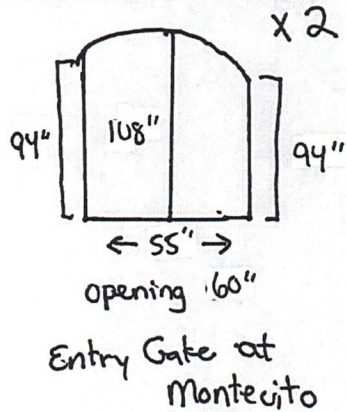 x 2
94" 108" 94"
← 55" →
opening 60"
Entry Gate at
Montecito